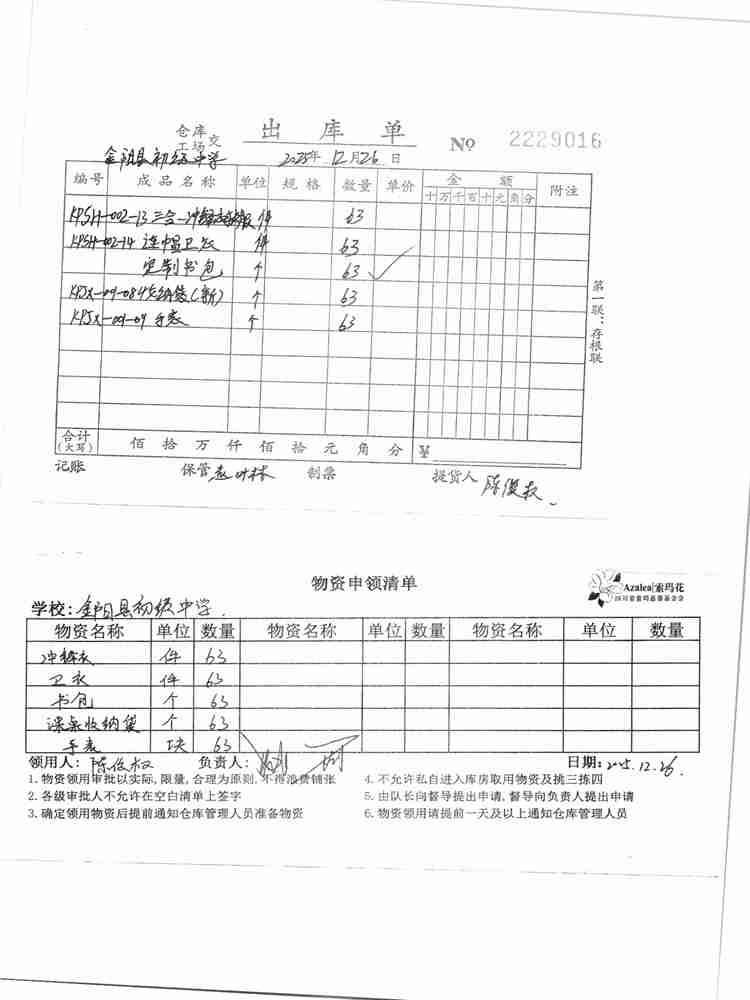 仓库
工场 交 出库单 № 2229016
金阳县初级中学 2025年12月26日
编号 成品名称 单位 规格 数量 单价 金额 附注
十万千百十元角分
KPSH-002-13 三合一冲锋衣 件 63
KPSH-002-14 连帽卫衣 件 63
定制书包 个 63 ✓
KPJX-09-08 收纳袋(新) 个 63
KPJX-09-09 手表 个 63
第一联:存根联
合计(大写) 佰拾万仟佰拾元角分 ¥
记账 保管 制票 提货人 陈俊权
物资申领清单 Azalea|索玛花
四川省索玛慈善基金会
学校:金阳县初级中学.
物资名称 单位 数量 物资名称 单位 数量 物资名称 单位 数量
冲锋衣 件 63
卫衣 件 63
书包 个 63
课桌收纳袋 个 63
手表 块 63
领用人:陈俊权 负责人: 日期:2025.12.26.
1.物资领用审批以实际,限量,合理为原则,不得浪费铺张 4.不允许私自进入库房取用物资及挑三拣四
2.各级审批人不允许在空白清单上签字 5.由队长向督导提出申请,督导向负责人提出申请
3.确定领用物资后提前通知仓库管理人员准备物资 6.物资领用请提前一天及以上通知仓库管理人员